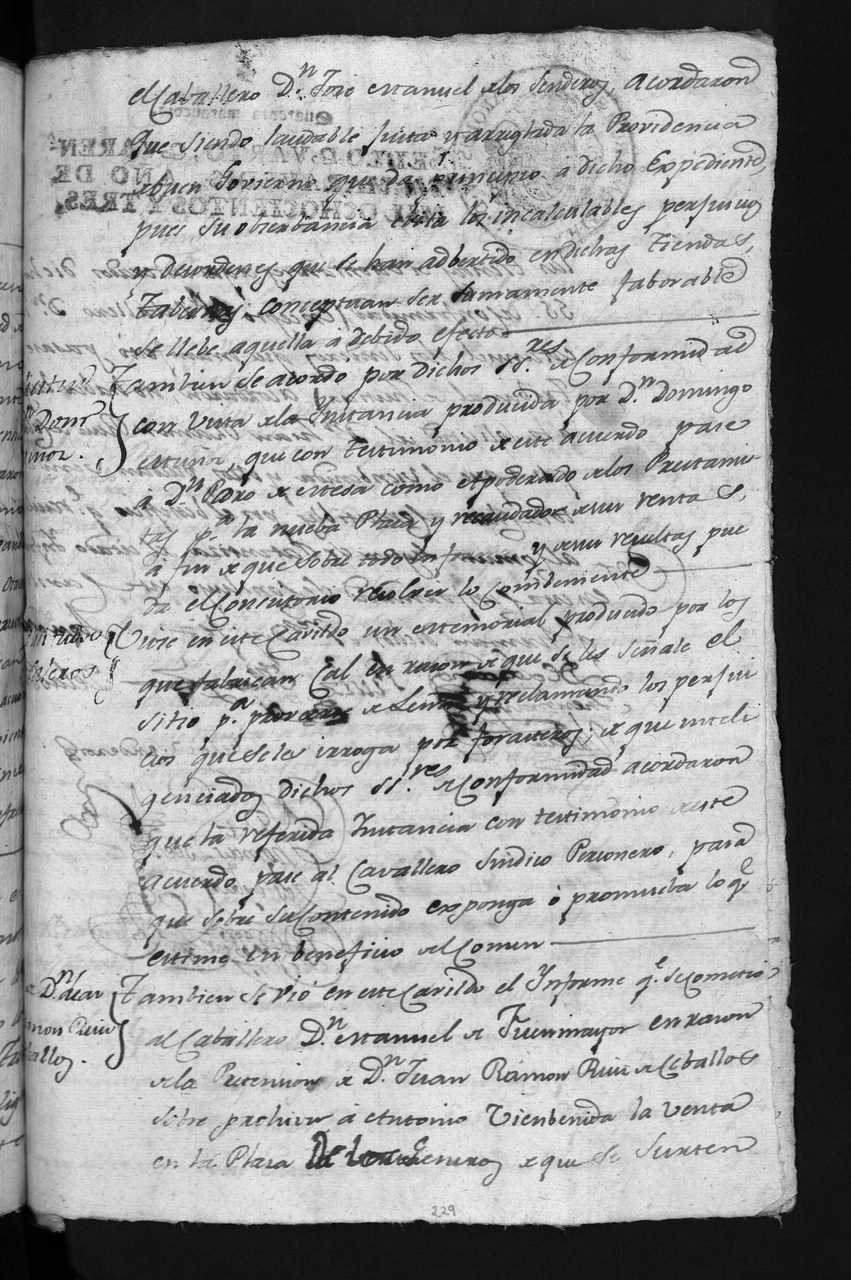 el Caballero D.n Jose Manuel de los Senderos, acordaron
que siendo laudable justa y arreglada la Providencia
de buen Govierno que da principio a dicho Expediente,
pues su obserbancia evita los incalculables perjuicios
y desordenes que se han adbertido en dichas Tiendas,
Tabernas, conceptuan ser sumamente faborable
se llebe aquella a debido efecto
Tambien se acordo por dichos SS.res de Conformidad
con vista de la Instancia producida por D.n Domingo
que con testimonio de este acuerdo pase
a D.n Pedro de Mesa como Apoderado de los Prestamis
tas p.a la nueba Plaza y recaudador de sus ventas,
a fin de que sobre todo y de sus resultas pue
da el Consistorio resolver lo combeniente
Viose en este Cavildo un Memorial producido por los
que fabrican Cal en razon de que se les señale el
sitio p.a de Leña y reclamando los perjui
cios que se les irroga por forasteros; de que inteli
genciados dichos SS.res de Conformidad acordaron
que la referida Instancia con testimonio de este
acuerdo pase al Cavallero Sindico Personero, para
que sobre su Contenido exponga o promueba lo q.e
estime en beneficio del Comun
D.n Juan
Ramon Ruiz
Ceballos
Tambien se vió en este Cavildo el Informe q.e se cometió
al Caballero D.n Manuel de Fuenmayor en razon
de la Pretension de D.n Juan Ramon Ruiz de Ceballos
sobre prohivir a Antonio Vienbenida la venta
en la Plaza de los Generos de que se surten
229